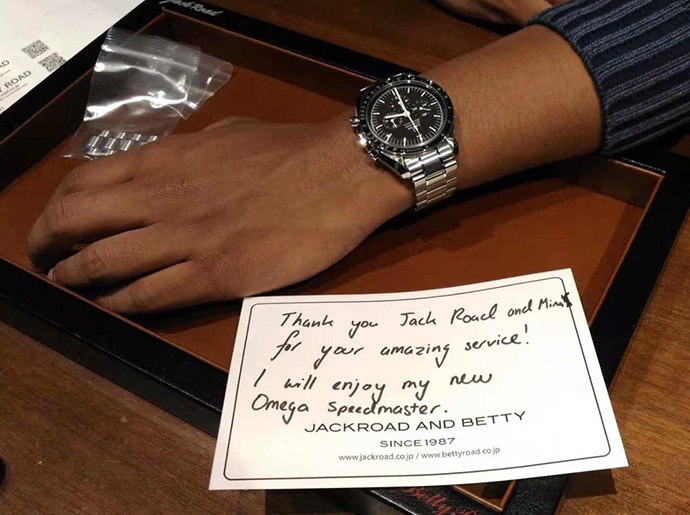 Jack Road
ROAD
TY ROAD
Thank you Jack Road and Mina
for your amazing service!
I will enjoy my new
Omega Speedmaster.
JACKROAD AND BETTY
SINCE1987
www.jackroad.co.jp / www.bettyroad.co.jp